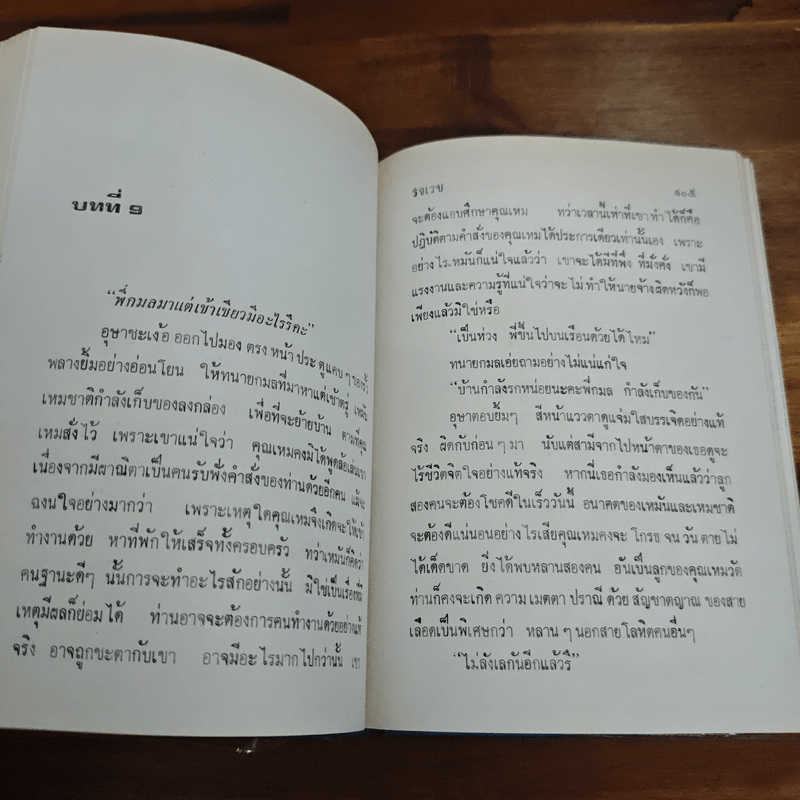 บทที่ ๑
“พี่กมลมาแต่เช้าเชียวมีอะไรรึคะ”
อุษาชะเง้อ ออกไปมอง ตรง หน้า ประ ตูแคบ ๆ ของรั้ว
พลางยิ้มอย่างอ่อนโยน ให้ทนายกมลที่มาหาแต่เช้าตรู่ เหมัน
เหมชาติกำลังเก็บของลงกล่อง เพื่อที่จะย้ายบ้าน ตามที่คุณ
เหมสั่งไว้ เพราะเขาแน่ใจว่า คุณเหมคงมิได้พูดล้อเล่นเขา
เนื่องจากมีผาณิตาเป็นคนรับฟังคำสั่งของท่านด้วยอีกคน แม้จะ
ฉงนใจอย่างมากว่า เพราะเหตุใดคุณเหมจึงเกิดจะให้เข้า
ทำงานด้วย หาที่พักให้เสร็จทั้งครอบครัว ทว่าเหมันก็คิดว่า
คนฐานะดีๆ นั้นการจะทำอะไรสักอย่างนั้น มิใช่เป็นเรื่องที่มี
เหตุมีผลก็ย่อมได้ ท่านอาจจะต้องการคนทำงานด้วยอย่างแท้
จริง อาจถูกชะตากับเขา อาจมีอะไรมากไปกว่านั้น เขา
รจเรข ๑๐๕
จะต้องแอบศึกษาคุณเหม ทว่าเวลานี้เท่าที่เขา ทำ ได้ก็คือ
ปฏิบัติตามคำสั่งของคุณเหมได้ประการเดียวเท่านั้นเอง เพราะ
อย่างไร.หมันก็แน่ใจแล้วว่า เขาจะได้มีที่พึ่ง ที่มั่งคั่ง เขามี
แรงงานและความรู้ที่แน่ใจว่าจะไม่ ทำให้นายจ้างผิดหวังก็พอ
เพียงแล้วมิใช่หรือ
“เป็นห่วง พี่ขึ้นไปบนเรือนด้วยได้ไหม”
ทนายกมลเอ่ยถามอย่างไม่แน่แก่ใจ
“บ้านกำลังรกหน่อยนะคะพี่กมล กำลังเก็บของกัน”
อุษาตอบยิ้มๆ สีหน้าแววตาดูแจ่มใสบรรเจิดอย่างแท้
จริง ผิดกับก่อนๆ มา นับแต่สามีจากไปหน้าตาของเธอดูจะ
ไร้ชีวิตจิตใจอย่างแท้จริง หากนี่เธอกำลังมองเห็นแล้วว่าลูก
สองคนจะต้อง โชคดีในเร็ววันนี้ อนาคตของเหมันและเหมชาติ
จะต้องดีแน่นอนอย่าง ไรเสียคุณเหมคงจะ โกรธ จน วัน ตายไม่
ได้เด็ดขาด ยิ่งได้พบหลานสองคน อันเป็นลูกของคุณเหมวัต
ท่านก็คงจะเกิด ความ เมตตา ปราณี ด้วย สัญชาตญาณ ของสาย
เลือดเป็นพิเศษกว่า หลาน ๆ นอกสายโลหิตคนอื่นๆ
“ไม่ลังเลกันอีกแล้วรึ”